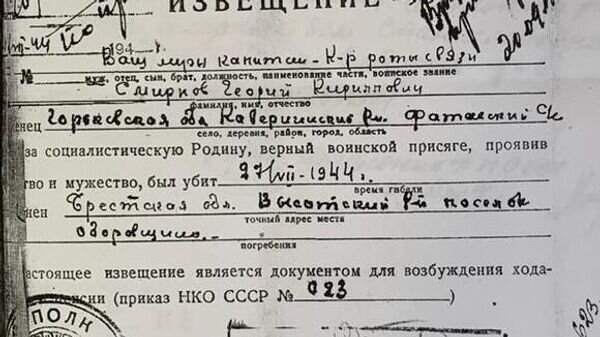 ИЗВЕЩЕНИЕ
194
Ваш муж капитан К-р роты связи
№ муж, отец, сын, брат, должность, наименование части, воинское звание
Смирнов Георгий Кириллович
фамилия, имя, отчество
енец Горьковская обл
село, деревня, район, город, область
за социалистическую Родину, верный воинской присяге, проявив
во и мужество, был убит 27/VII-1944г.
время гибели
нен Брестская обл. Высотский р-й поселок
точный адрес места
погребения
астоящее извещение является документом для возбуждения хода-
пенсии (приказ НКО СССР № 023 )
ПОЛК
623